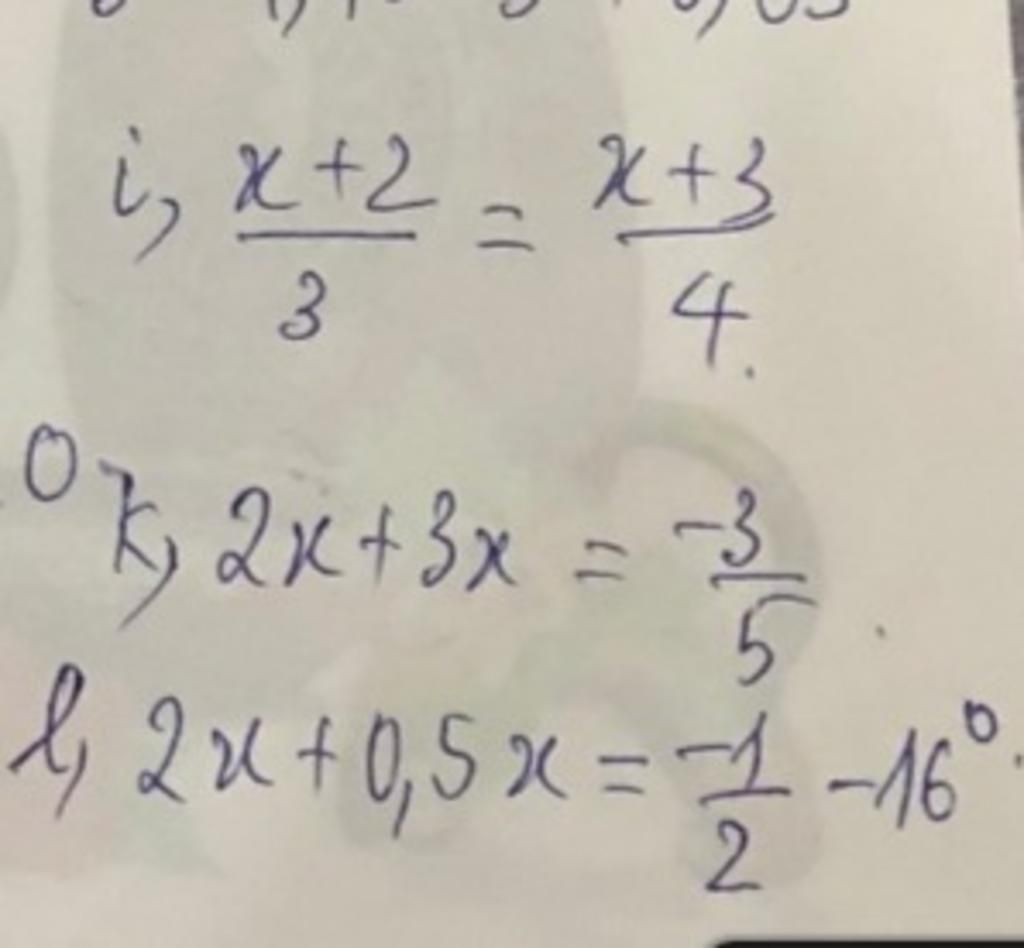 i, \frac{x+2}{3} = \frac{x+3}{4}.
k, 2x+3x = \frac{-3}{5}
l, 2x+0,5x = \frac{-1}{2} -16^0.